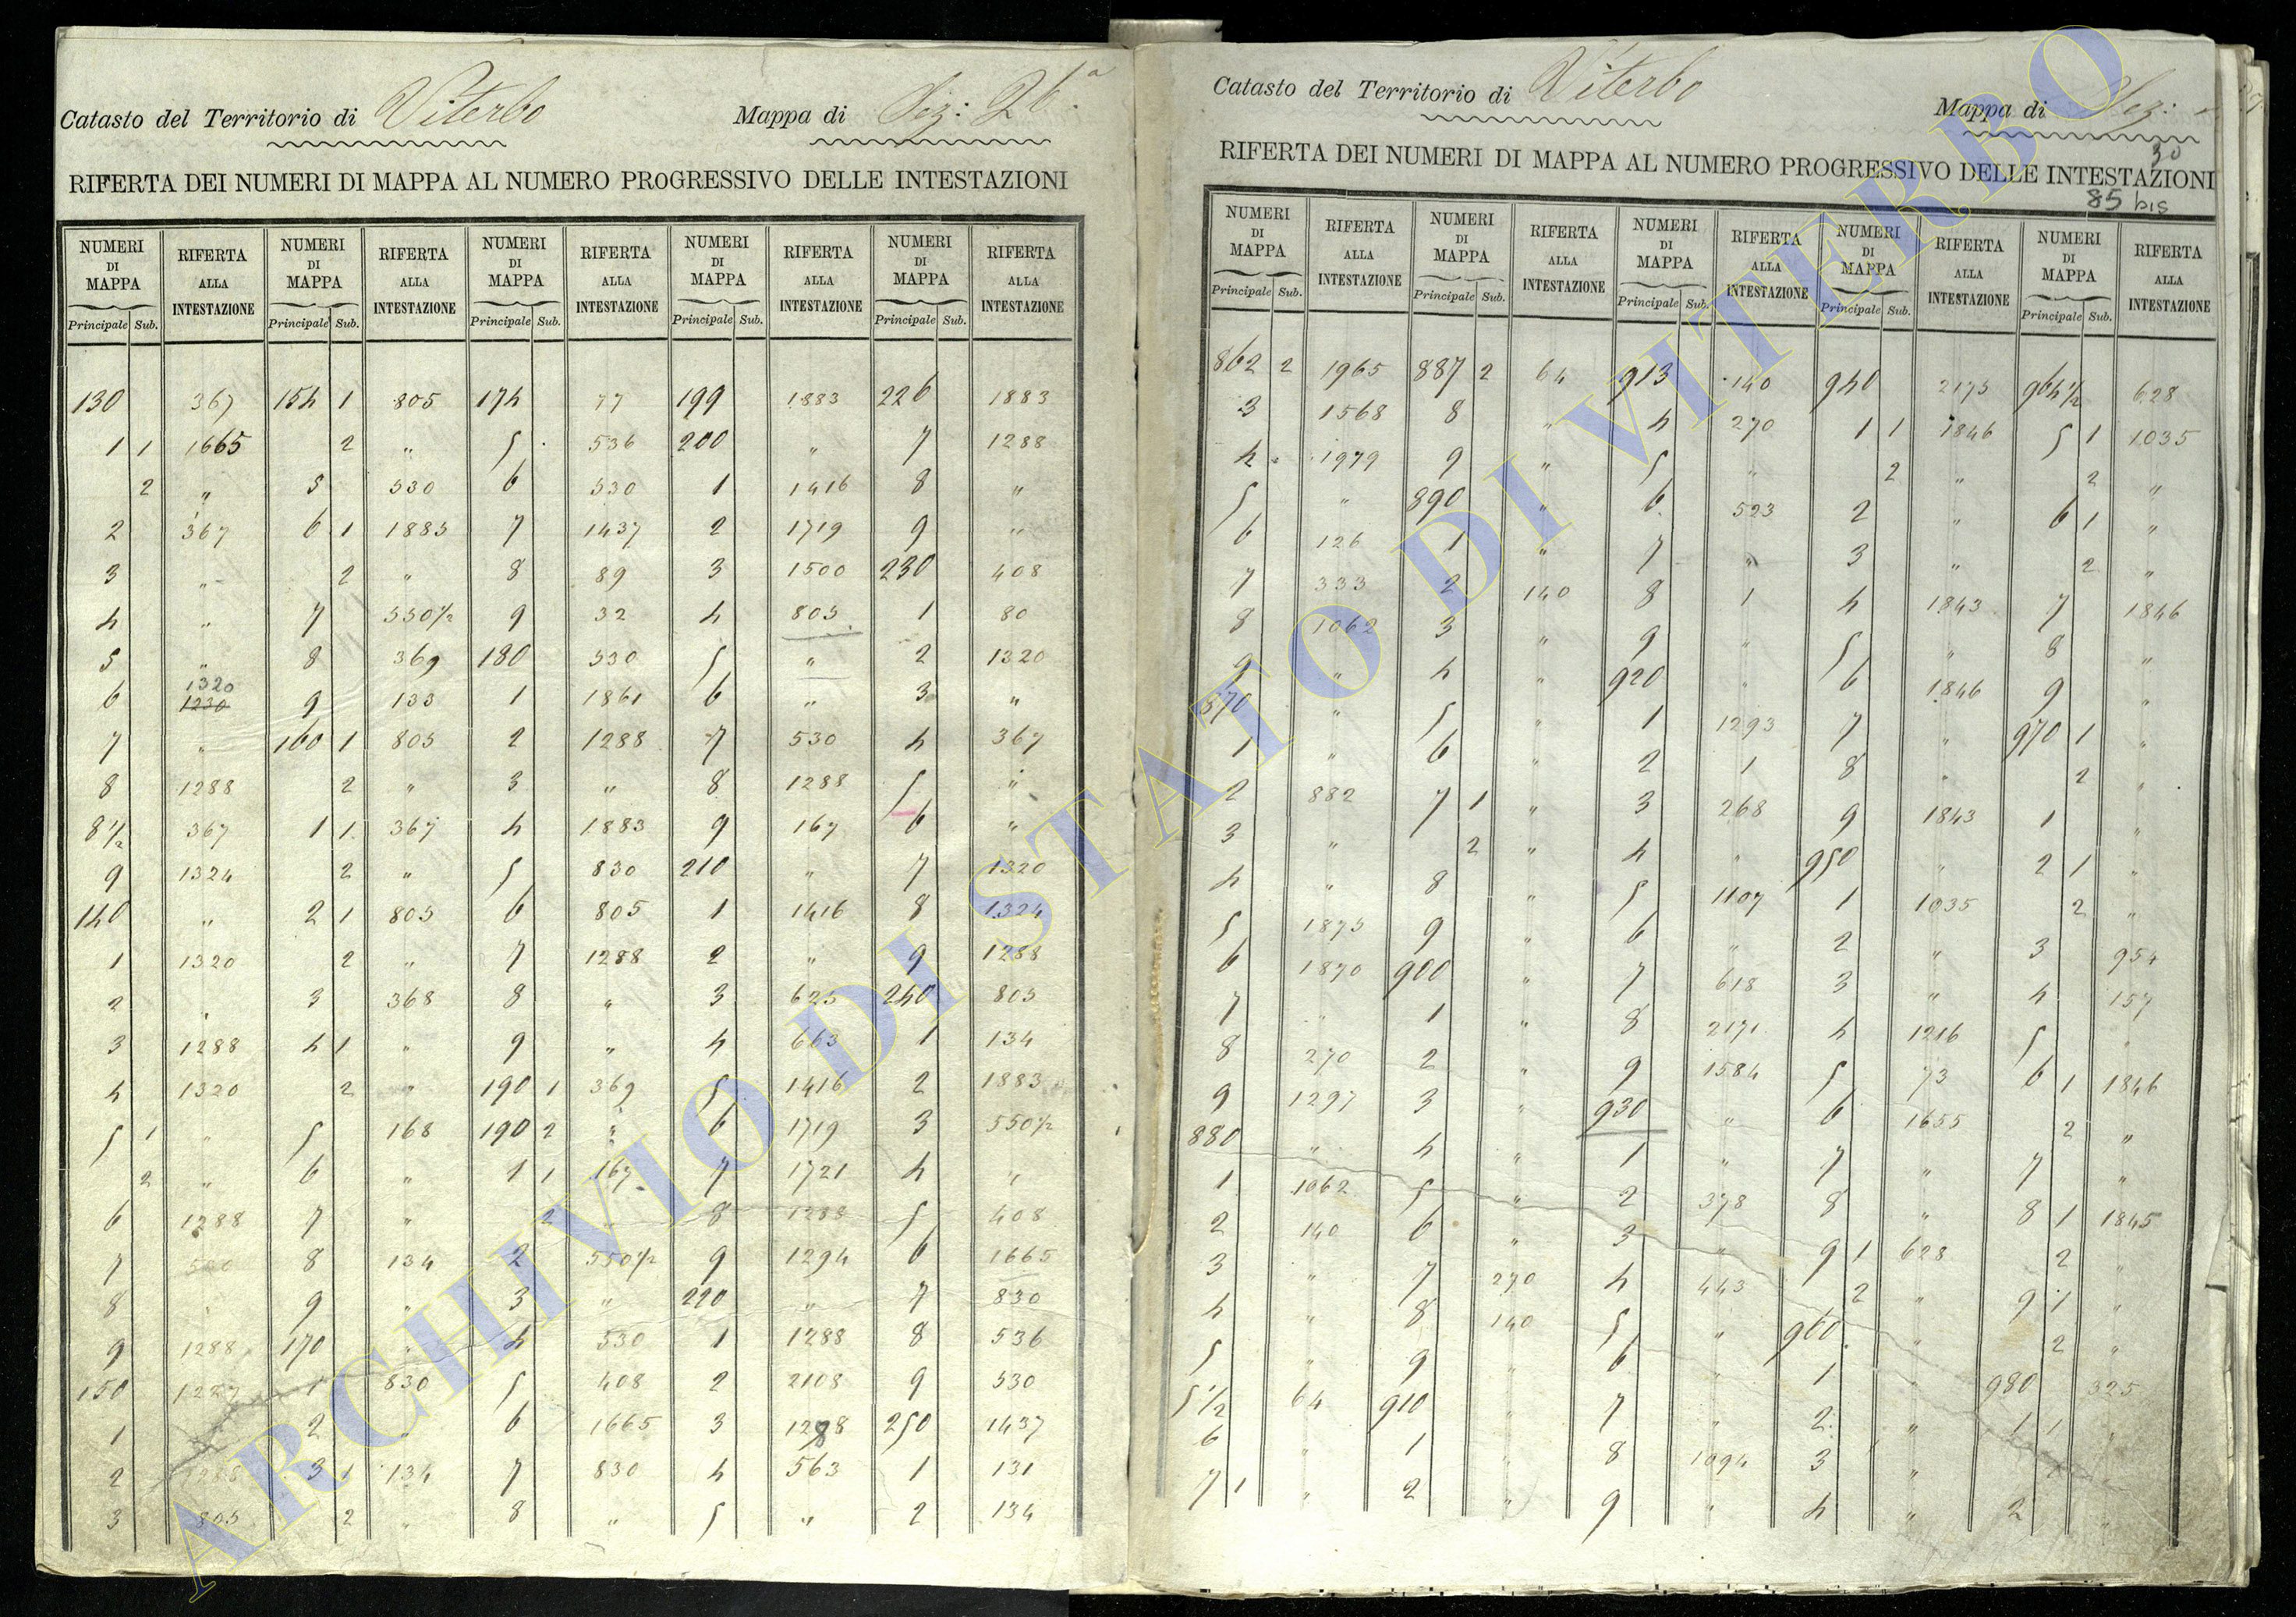 Catasto del Territorio di Viterbo Mappa di Sez: 26.a
RIFERTA DEI NUMERI DI MAPPA AL NUMERO PROGRESSIVO DELLE INTESTAZIONI
NUMERI DI MAPPA RIFERTA ALLA INTESTAZIONE NUMERI DI MAPPA RIFERTA ALLA INTESTAZIONE NUMERI DI MAPPA RIFERTA ALLA INTESTAZIONE NUMERI DI MAPPA RIFERTA ALLA INTESTAZIONE NUMERI DI MAPPA RIFERTA ALLA INTESTAZIONE
Principale Sub. Principale Sub. Principale Sub. Principale Sub. Principale Sub.
130 367 154 1 805 174 77 199 1883 226 1883
1 1 1665 2 " 5 536 200 " 7 1288
2 " 5 530 6 530 1 1416 8 "
2 367 6 1 1883 7 1437 2 1719 9 "
3 " 2 " 8 89 3 1500 230 408
4 " 7 550½ 9 32 4 805 1 80
5 " 8 369 180 530 5 " 2 1320
6 1320 1230 9 133 1 1861 6 " 3 "
7 " 160 1 805 2 1288 7 530 4 367
8 1288 2 " 3 " 8 1288 5 "
8½ 367 1 1 367 4 1883 9 167 6 "
9 1324 2 " 5 830 210 " 7 1320
140 " 2 1 805 6 805 1 1416 8 1324
1 1320 2 " 7 1288 2 " 9 1288
2 " 3 368 8 " 3 625 240 805
3 1288 4 1 " 9 " 4 663 1 134
4 1320 2 " 190 1 369 5 1416 2 1883
5 1 " 5 168 190 2 " 6 1719 3 550½
2 " 6 " 1 1 167 7 1721 4 "
6 1288 7 " 2 " 8 1288 5 408
7 8 134 2 550½ 9 1294 6 1665
8 " 9 " 3 " 220 " 7 830
9 1288 170 " 4 530 1 1288 8 536
150 1 830 5 408 2 2108 9 530
1 2 " 6 1665 3 1288 250 1437
2 3 1 134 7 830 4 563 1 131
3 805 2 " 8 " 5 " 2 134
Catasto del Territorio di Viterbo Mappa di Sez:
30
RIFERTA DEI NUMERI DI MAPPA AL NUMERO PROGRESSIVO DELLE INTESTAZIONI
85 bis
NUMERI DI MAPPA RIFERTA ALLA INTESTAZIONE NUMERI DI MAPPA RIFERTA ALLA INTESTAZIONE NUMERI DI MAPPA RIFERTA ALLA INTESTAZIONE NUMERI DI MAPPA RIFERTA ALLA INTESTAZIONE NUMERI DI MAPPA RIFERTA ALLA INTESTAZIONE
Principale Sub. Principale Sub. Principale Sub. Principale Sub. Principale Sub.
862 2 1965 887 2 64 913 140 940 2173 964½ 628
3 1568 8 " 4 270 1 1 1846 5 1 1035
4 1979 9 " 5 " 2 " 2 "
5 " 890 " 6 523 2 " 6 1 "
6 126 1 " 7 " 3 " 2 "
7 333 2 140 8 1 4 1843 7 1846
8 1062 3 " 9 " 5 " 8 "
9 " 4 " 920 " 6 1846 9 "
870 " 5 " 1 1293 7 " 970 1 "
1 " 6 " 2 1 8 " 2 "
2 882 7 1 " 3 268 9 1843 1 "
3 " 2 " 4 " 950 " 2 1 "
4 " 8 " 5 1107 1 1035 2 "
5 1875 9 " 6 " 2 " 3 954
6 1870 900 " 7 618 3 " 4 157
7 " 1 " 8 2171 4 1216 5 "
8 270 2 " 9 1584 5 73 6 1 1846
9 1297 3 " 930 " 6 1655 2 "
880 " 4 " 1 " 7 " 7 "
1 1062 5 " 2 378 8 " 8 1 1845
2 140 6 " 3 " 9 1 628 2 "
3 " 7 270 4 443 2 " 9 1 "
4 " 8 140 5 " 960 " 2 "
5 " 9 " 6 " 1 " 980 325
5½ 64 910 " 7 " 2 " 1 1 "
6 " 1 " 8 1094 3 " "
7 1 " 2 " 9 " 4 " 2 "
ARCHIVIO DI STATO DI VITERBO